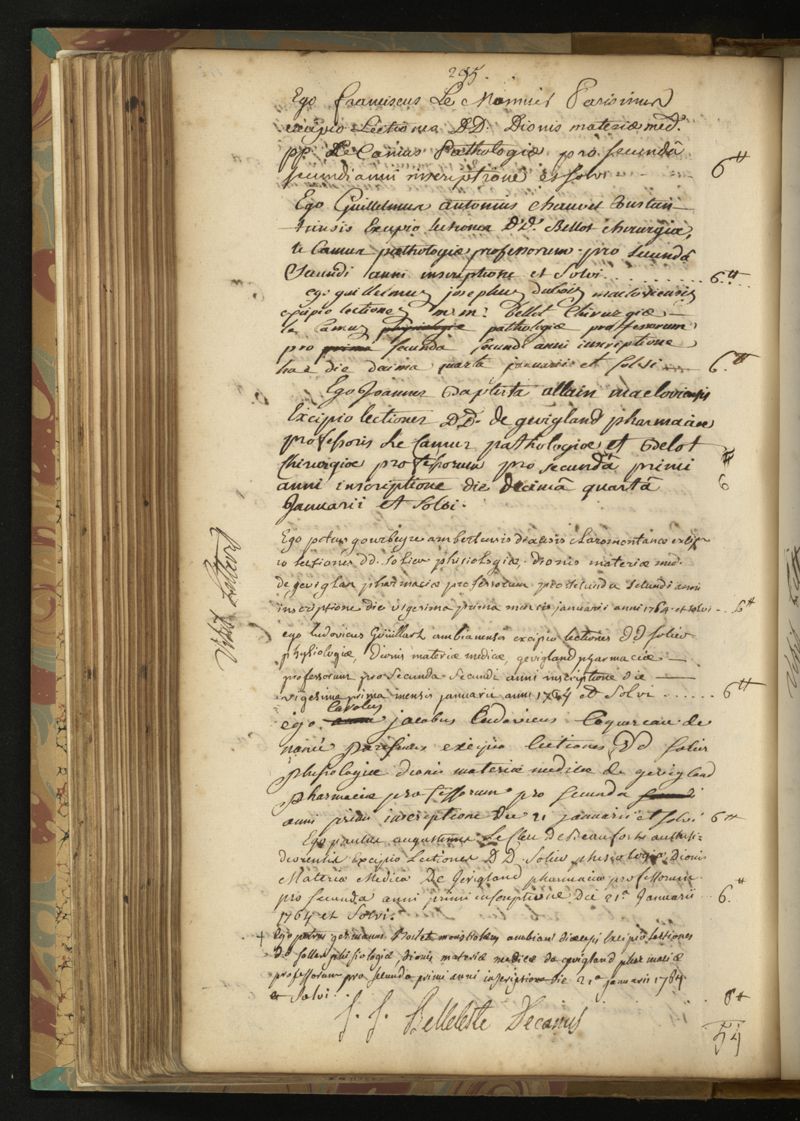 205.
Ego franciscus Le Monnier Parisinus
excipio Lectiones D.D. Dionis materiæ med.
pp. Le Camus Pathologiæ pro secundâ
secundi anni inscriptione et solvi 6#
Ego Guillelmus antonius chauvel
excipio lectiones D.D. Bellot chirurgiæ,
le Camus pathologiæ professorum pro secundâ
Secundi anni inscriptione et Solvi 6.#
ego guillelmus josephus dubois macloviensis
excipio lectiones m.m. Bellot Chirurgiæ
le Camus physiologiæ pathologiæ professorum
pro prima secunda secundi anni inscriptione
hac die decima quarta januarii et solvi 6.#
Ego Joannes Baptista allain macloviensis
Excipio lectiones D.D. de gevigland pharmaciæ
professoris Le Camus pathologiæ et Belot
Chirurgiæ professorum pro secundâ primi
anni inscriptione die decimâ quartâ # 6
Januarii et Solvi.
Ego petrus gourbeyre ambertensis diœcesis claromontanæ
lectiones dd. solier phisiologiæ, dionis materiæ med.
de gevigland pharmaciæ professorum pro secunda secundi anni
inscriptione die vigesima prima mensis januarii anni 1764 et solvi 6#
ego ludovicus ambianensis excipio lectiones DD solier
physiologiæ, dionis materiæ medicæ, gevigland pharmaciæ
professorum pro secunda secundi anni inscriptione die
vigesima prima mensis januarii anni 1764 et Solvi 6#
Carolus
ego jacobus Ludovicus Coquereau de
parisinus excipio lectiones dd solier
phisiologiæ dionis materiæ medicæ de gevigland
pharmaciæ professorum pro secunda
anni primi inscriptione die 21 januarii et solvi 6#
Ego paulus augustinus Le Cleu de Beaufort
Excipio Lectiones D D Solier phisiologiæ, Dionis
Materiæ Medicæ, De Gevigland pharmaciæ professorum
pro secunda anni primi inscriptione Die 21a Januarii 6.#
1764 et Solvi.
+ Ego petrus germanus ambiani diœcesis Excipio lectiones
DD sollier phisiologiæ, Dionis materiæ medicæ de gevigland pharmaciæ
professorum pro secunda primi anni inscriptione die 21a januarii 1764
et Solvi. 6#
J. J. Belleteste Decanus
54